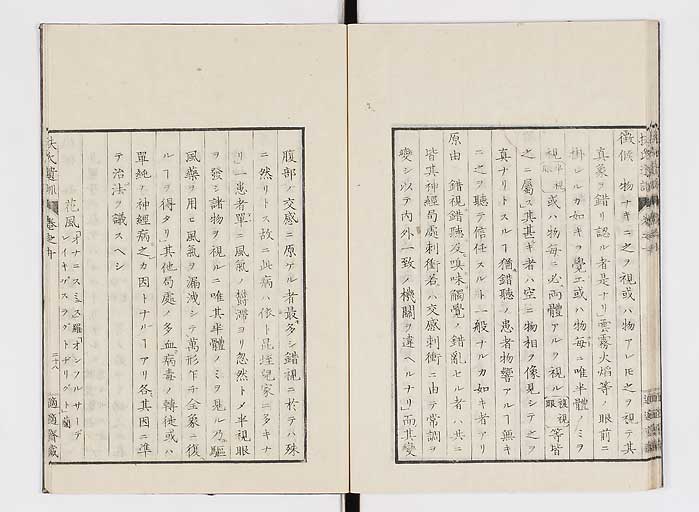 徴候 物ナキニ之ヲ視或ハ物アレ𪜈之ヲ視テ其
真象ヲ錯リ認ル者是ナリ雲霧火焰等ノ眼前ニ
掛レルカ如キヲ覺エ或ハ物毎ニ唯半體ノミヲ
視半視眼或ハ物毎ニ必両體アルヲ視ル複視眼等皆
之ニ屬ス其甚キ者ハ空ニ物相ヲ像見シテ之ヲ
真ナリトスルヿ猶錯聴ノ患者物響アルヿ無キ
ニ之ヲ聴テ信任スルト一般ナルカ如キ者アリ
原由 錯視錯聴及嗅味觸覺ノ錯亂セル者ハ共ニ
皆其神經局處刺衝若ハ交感刺衝ニ由テ常調ヲ
變シ以テ内外一致ノ機關ヲ違ヘルナリ而其變
腹部ノ交感ニ原ケル者最多シ錯視ニ於テハ殊
ニ然リトス故ニ此病ハ依卜昆垤兒家ニ多キナ
リ一患者單ニ風氣ノ鬱滞ヨリ忽然トメ半視眼
ヲ發シ諸物ヲ視ルニ唯其半體ノミヲ見ル乃驅
風藥ヲ用ヒ風氣ヲ漏洩シテ萬形乍チ全象ニ復
ルヿヲ得タリ其他局處ノ多血病毒ノ轉徙或ハ
單純ノ神經病之カ因トナルヿアリ各其因ニ準
テ治法ヲ議スヘシ
花風「オナニスミス」羅「オンフルサーデ
レイキゲスラグトドリグト」蘭
扶氏遺訓 巻之十 二十八 適適齋藏